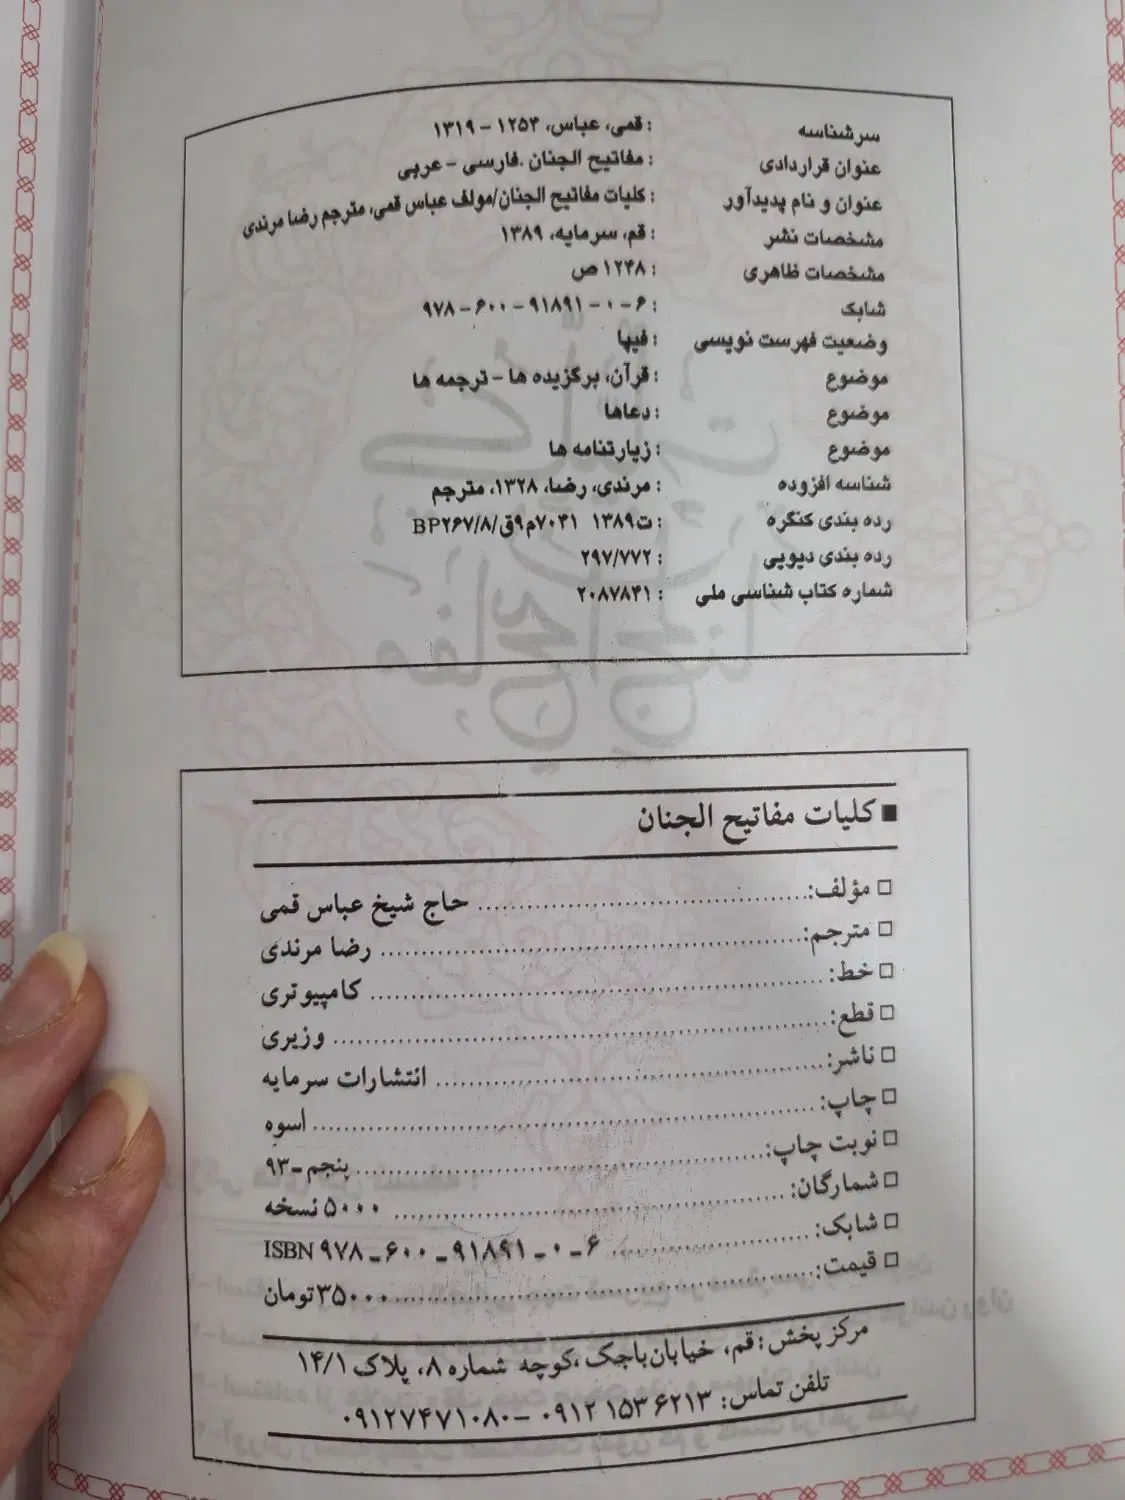 سرشناسه : قمی، عباس، ۱۲۵۴ - ۱۳۱۹
عنوان قراردادی : مفاتیح الجنان .فارسی - عربی
عنوان و نام پدیدآور : کلیات مفاتیح الجنان/مولف عباس قمی، مترجم رضا مرندی
مشخصات نشر : قم، سرمایه، ۱۳۸۹
مشخصات ظاهری : ۱۲۴۸ ص
شابک : ۶ - ۰ - ۹۱۸۹۱ - ۶۰۰ - ۹۷۸
وضعیت فهرست نویسی : فیپا
موضوع : قرآن، برگزیده ها - ترجمه ها
موضوع : دعاها
موضوع : زیارتنامه ها
شناسه افزوده : مرندی، رضا، ۱۳۲۸، مترجم
رده بندی کنگره : ۷۰۴۱ ت۱۳۸۹م۹ق/BP۲۶۷/۸
رده بندی دیویی : ۲۹۷/۷۷۲
شماره کتاب شناسی ملی : ۲۰۸۷۸۴۱
■ کلیات مفاتیح الجنان
□ مؤلف: حاج شیخ عباس قمی
□ مترجم: رضا مرندی
□ خط: کامپیوتری
□ قطع: وزیری
□ ناشر: انتشارات سرمایه
□ چاپ: اسوه
□ نوبت چاپ: پنجم-۹۳
□ شمارگان: ۵۰۰۰ نسخه
□ شابک: ISBN ۹۷۸ - ۶۰۰ - ۹۱۸۹۱ - ۰ - ۶
□ قیمت: ۳۵۰۰۰ تومان
مرکز پخش: قم، خیابان باجک، کوچه شماره ۸، پلاک ۱۴/۱
تلفن تماس: ۰۹۱۲ ۱۵۳ ۶۲۱۳ - ۰۹۱۲۷۴۷۱۰۸۰